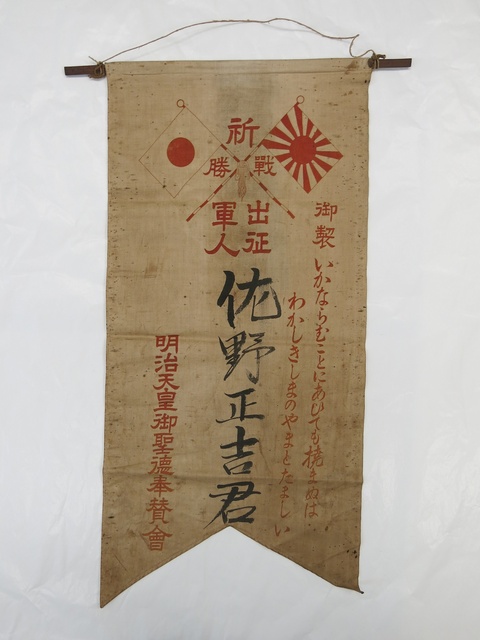 祈
戰勝
出征
軍人
御製
いかならむことにあひても撓まぬは
わかしきしまのやまとたましい
佐野正吉君
明治天皇御聖德奉賛會